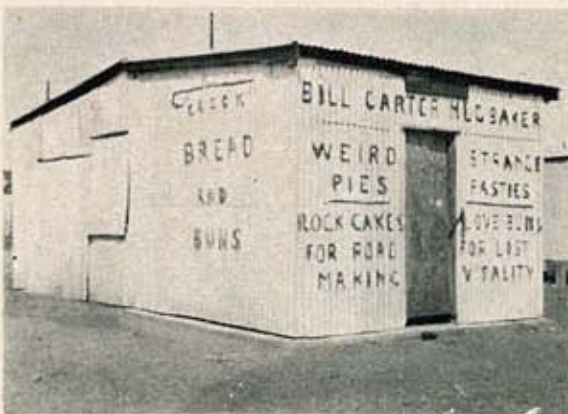 CROOK
BREAD
AND
BUNS
BILL CARTER HUGBAKER
WEIRD
PIES
ROCK CAKES
FOR ROAD
MAKING
STRANGE
PASTIES
LOVE BUNS
FOR LOST
VITALITY